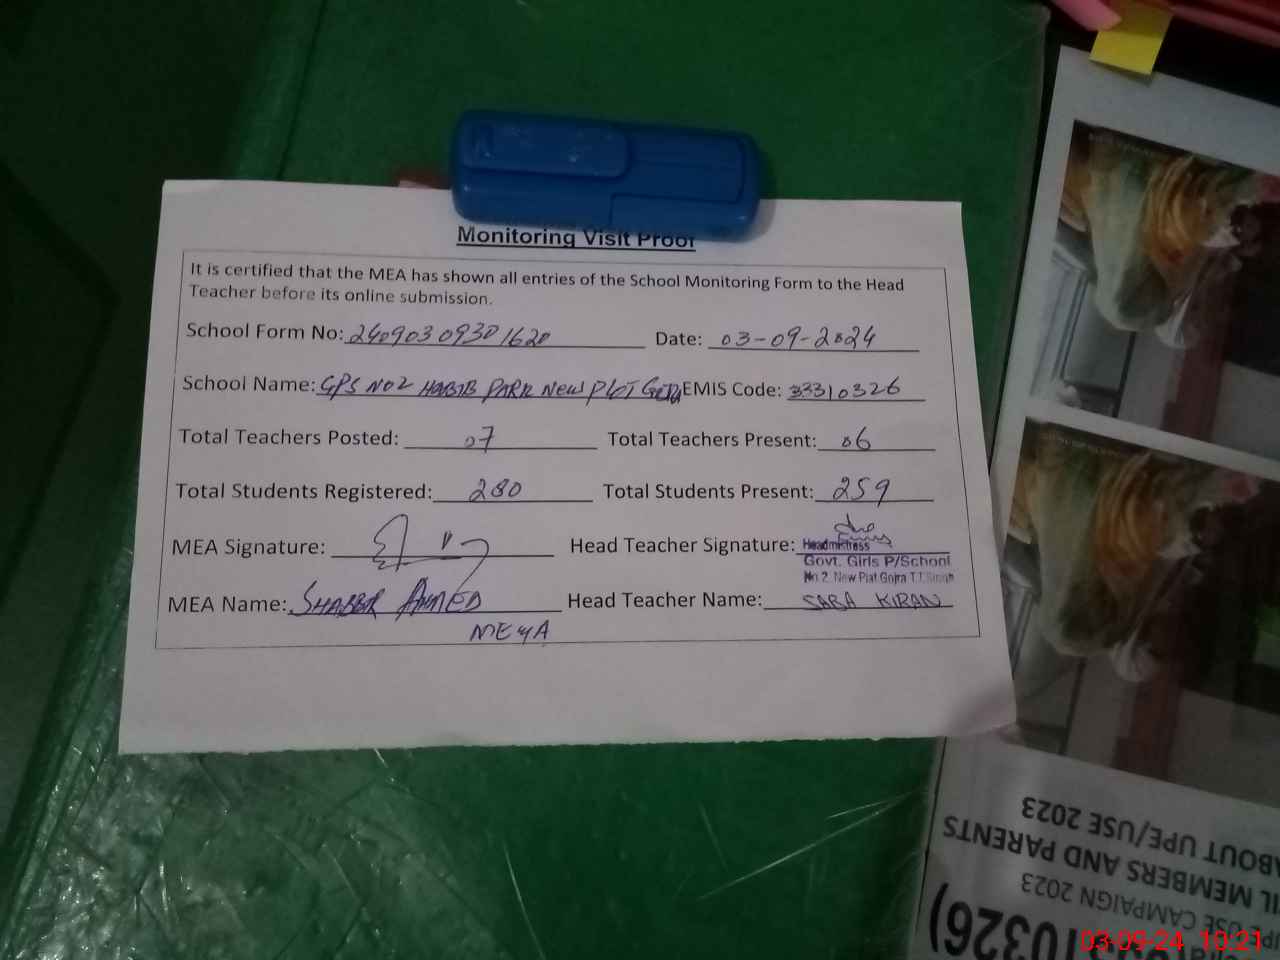 Monitoring Visit Proof
It is certified that the MEA has shown all entries of the School Monitoring Form to the Head
Teacher before its online submission.
School Form No: 24090309301620 Date: 03-09-2024
School Name: GPS NO2 HABIB PARK NEW PLOT EMIS Code: 33310326
Total Teachers Posted: 07 Total Teachers Present: 06
Total Students Registered: 280 Total Students Present: 259
MEA Signature: Head Teacher Signature:
Headmistress
Govt. Girls P/School
No.2. New Plat Gojra T.T.Singh
MEA Name: SHABBIR AHMED Head Teacher Name: SABA KIRAN
ABOUT UPE/USE 2023
IL MEMBERS AND PARENTS
USE CAMPAIGN 2023
10326)
03-09-24 10:21